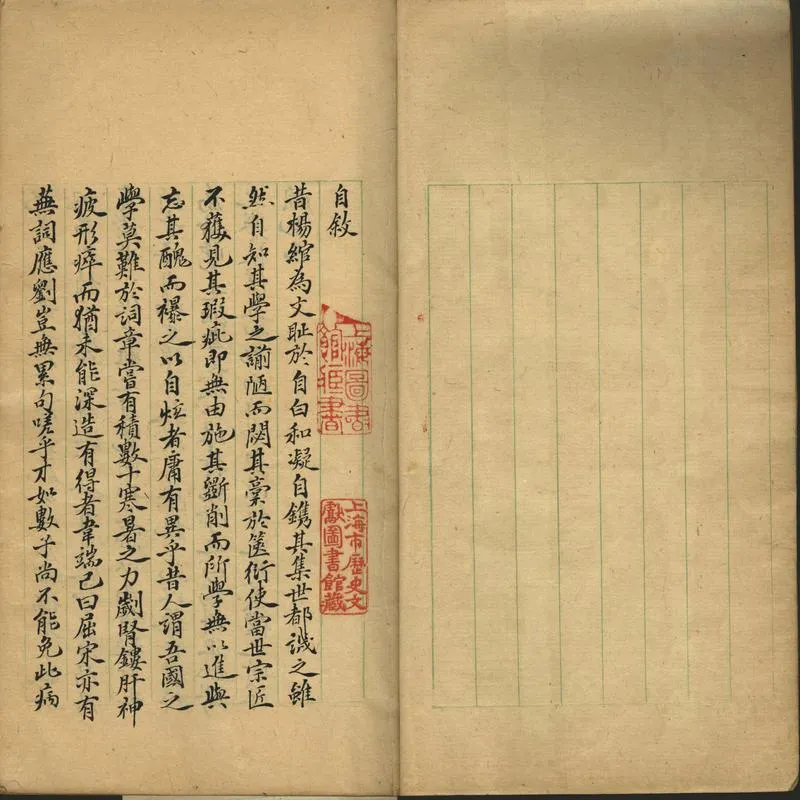 自敘
昔楊綰為文耻於自白和凝自鐫其集世都譏之雖
然自知其學之謭陋而閟其稾於篋衍使當世宗匠
不獲見其瑕疵即無由施其斵削而所學無以進與
忘其醜而襮之以自炫者庸有異乎昔人謂吾國之
學莫難於詞章嘗有積數十寒暑之力劌腎鏤肝神
疲形瘁而猶未能深造有得者韋端己曰屈宋亦有
蕪詞應劉豈無累句嗟乎才如數子尚不能免此病
上海圖書
館藏書
上海市歷史文
獻圖書館藏